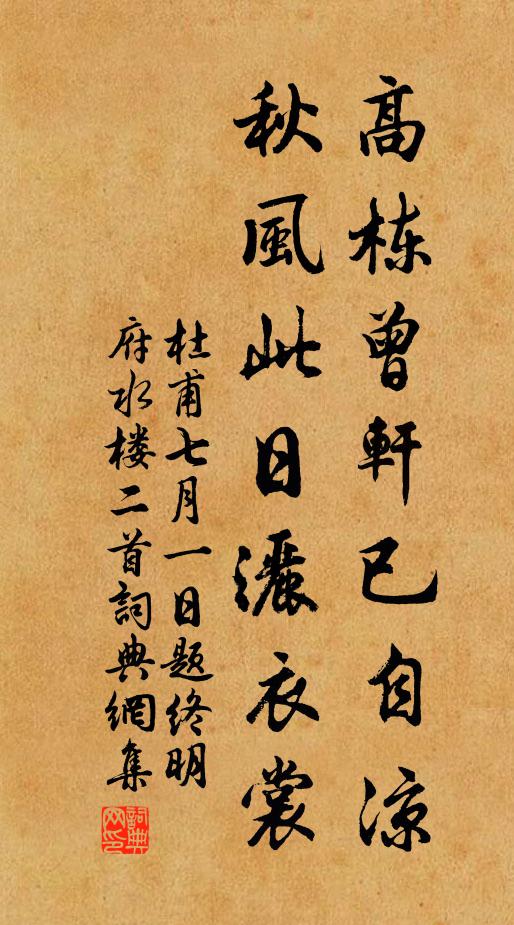 高栋曾軒已自涼
秋風此日灑衣裳
杜甫七月一日题终明
府水楼二首詞典網集
詞典
网印